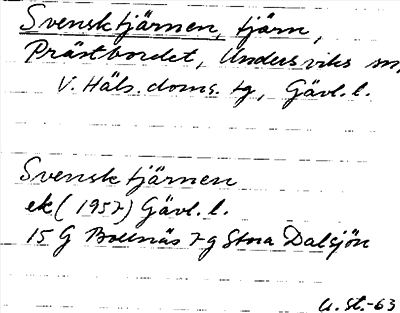 Svensktjärnen, tjärn,
Prästbordet, Undersviks sn,
V. Häls. doms. tg, Gävl. l.
Svensktjärnen
ek (1957) Gävl. l.
15 G Bollnäs 7 g Stora Dalsjön
U. St. -63